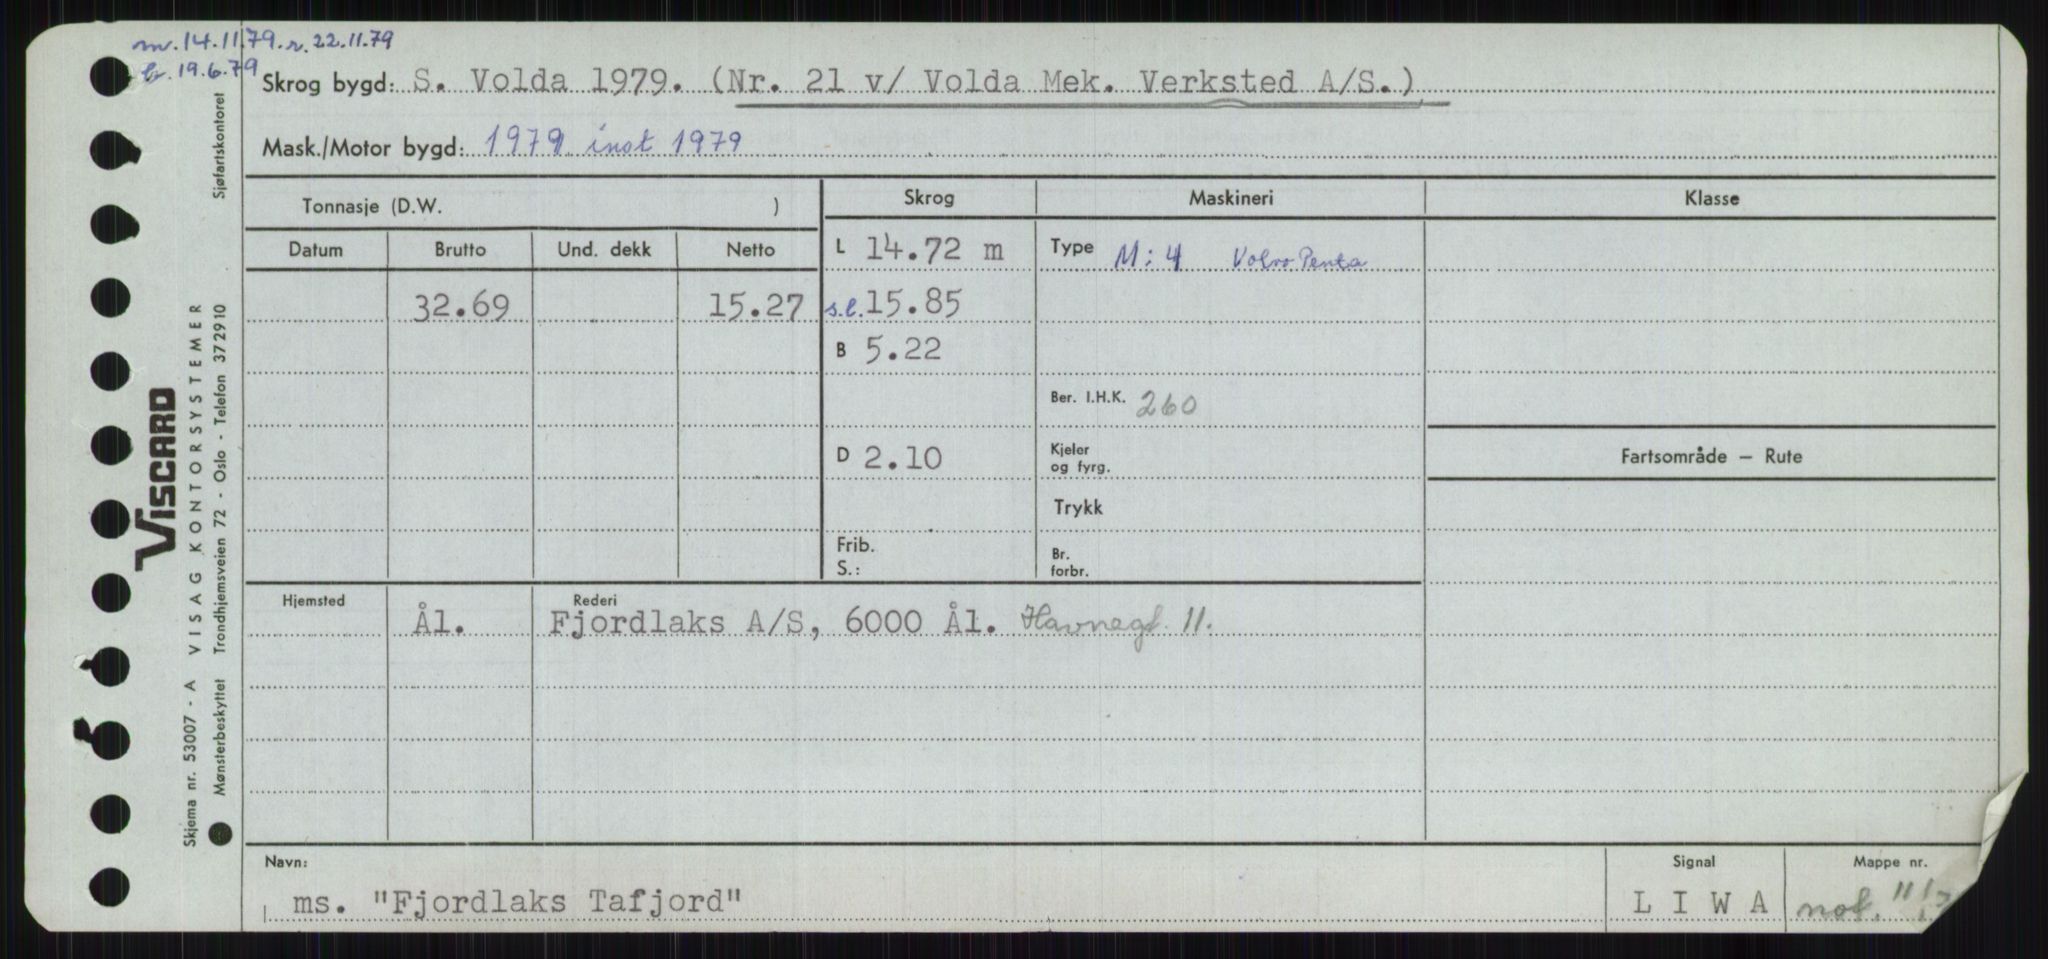 m. 14.11.79. r. 22.11.79
br. 19.6.79
Skrog bygd: S. Volda 1979. (Nr. 21 v/ Volda Mek. Verksted A/S.)
Mask./Motor bygd: 1979 inst 1979
Tonnasje (D.W. ) Skrog Maskineri Klasse
Datum Brutto Und. dekk Netto L 14.72 m Type M: 4 Volvo Penta
32.69 15.27 s.l. 15.85
B 5.22
Ber. I.H.K. 260
D 2.10 Kjeler og fyrg. Fartsområde – Rute
Trykk
Frib. S.: Br. forbr.
Hjemsted Rederi
Ål. Fjordlaks A/S, 6000 Ål. Havnegt. 11.
Navn: Signal Mappe nr.
ms. "Fjordlaks Tafjord" L I W A not. 11/
VISCARD
Skjema nr. 53007 - A VISAG KONTORSYSTEMER
Mønsterbeskyttet Trondhjemsveien 72 - Oslo - Telefon 372910 Sjøfartskontoret